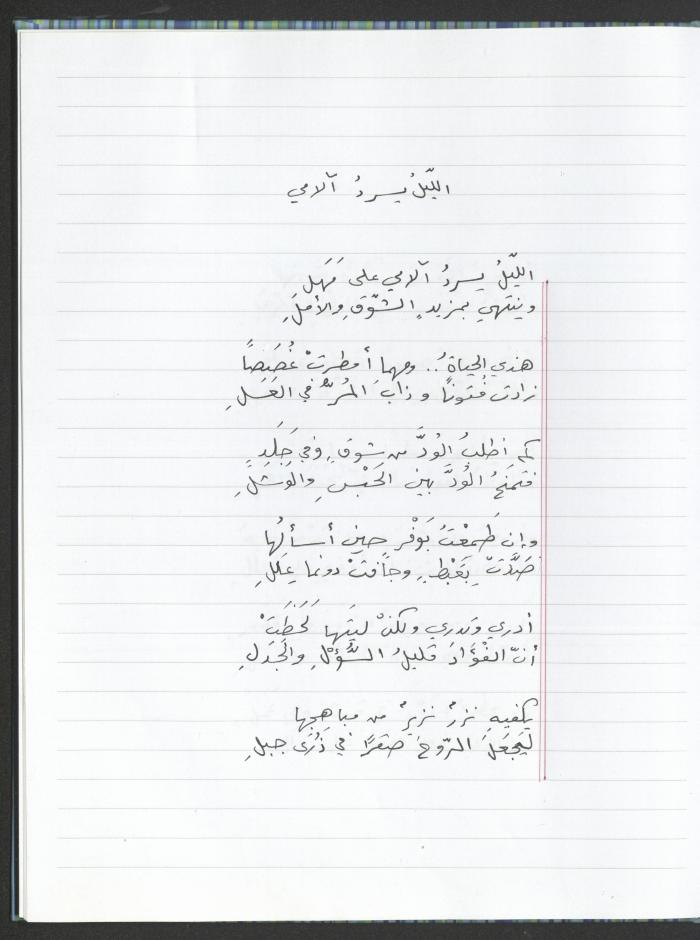 الليّلُ يسردُ آلامي
الليّلُ يسردُ آلامي على مَهَلٍ
وينتهي بمزيدِ الشّوقِ والأملِ
هذي الحياةُ .. ومهما أمطرتْ غُصَصًا
زادت فُتونًا وذابَ المُرُّ في العَسَلِ
كم أطلبُ الوُدَّ من شوقٍ وفي جَلَدٍ
فتمنحُ الوُدَّ بين الحَبْسِ والوَشَلِ
وإن طَمِعْتُ بوَفْرٍ حين أسألُها
صَدَّتْ بِغَبْطٍ وجافتْ دونما عِلَلِ
أدري وتدري ولكنْ ليتَها لَحَظَتْ
أنّ الفؤادَ قليلُ السُّؤْلِ والجَدَلِ
يكفيهِ نزرٌ نزيرٌ من مباهِجِها
ليَجعَلَ الرّوحَ صقرًا في ذُرَى جبلِ